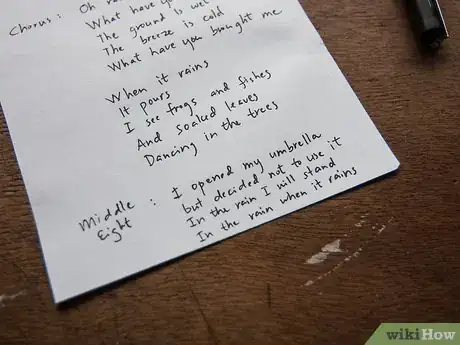 Chorus: Oh
What have yo
The ground is wet
The breeze is cold
What have you bought me
When it rains
It pours
I see frogs and fishes
And soaked leaves
Dancing in the trees
Middle Eight : I opened my umbrella
but decided not to use it
In the rain I will stand
In the rain when it rains
wikiHow